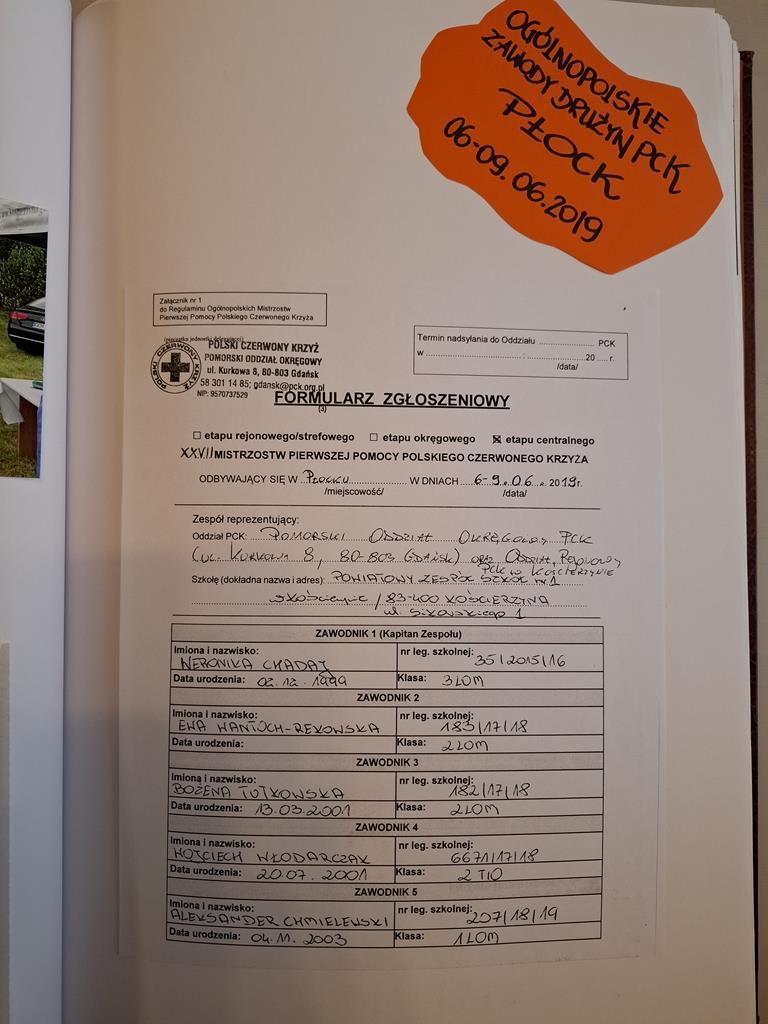 OGÓLNOPOLSKIE
ZAWODY DRUŻYN PCK
PŁOCK
06-09.06.2019
Załącznik nr 1
do Regulaminu Ogólnopolskich Mistrzostw
Pierwszej Pomocy Polskiego Czerwonego Krzyża
(pieczątka jednostki delegującej)
POLSKI CZERWONY KRZYŻ
POLSKI CZERWONY KRZYŻ
POMORSKI ODDZIAŁ OKRĘGOWY
ul. Kurkowa 8, 80-803 Gdańsk
58 301 14 85; gdansk@pck.org.pl
NIP: 9570737529
Termin nadsyłania do Oddziału .................. PCK
w ............................ : ................ 20 ..... r.
/data/
FORMULARZ ZGŁOSZENIOWY
(3)
☐ etapu rejonowego/strefowego ☐ etapu okręgowego ☒ etapu centralnego
XXVII MISTRZOSTW PIERWSZEJ POMOCY POLSKIEGO CZERWONEGO KRZYŻA
ODBYWAJĄCY SIĘ W Płocku W DNIACH 6-9.06.2019r.
/miejscowość/ /data/
Zespół reprezentujący:
Oddział PCK: POMORSKI ODDZIAŁ OKRĘGOWY PCK
(UL. KURKOWA 8, 80-803 GDAŃSK) oraz Oddział Rejonowy
PCK w Kościerzynie
Szkołę (dokładna nazwa i adres): POWIATOWY ZESPÓŁ SZKÓŁ nr 1
/ 83-400 KOŚCIERZYNA
ul. Sikorskiego 1
ZAWODNIK 1 (Kapitan Zespołu)
Imiona i nazwisko: nr leg. szkolnej: 35/2015/16
WERONIKA CHADAJ
Data urodzenia: 02.12.1999 Klasa: 3LOM
ZAWODNIK 2
Imiona i nazwisko: nr leg. szkolnej:
EWA WANTOCH-REKOWSKA 183/17/18
Data urodzenia: Klasa: 2LOM
ZAWODNIK 3
Imiona i nazwisko: nr leg. szkolnej:
BOŻENA TUTKOWSKA 182/17/18
Data urodzenia: 13.03.2001 Klasa: 2LOM
ZAWODNIK 4
Imiona i nazwisko: nr leg. szkolnej:
WOJCIECH WŁODARCZAK 6671/17/18
Data urodzenia: 20.07.2001 Klasa: 2 TIO
ZAWODNIK 5
Imiona i nazwisko: nr leg. szkolnej: 207/18/19
ALEKSANDER CHMIELEWSKI
Data urodzenia: 04.11.2003 Klasa: 1LOM